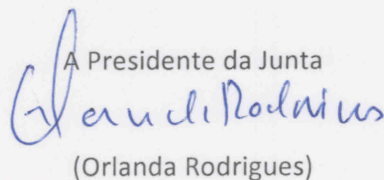 A Presidente da Junta
Orlanda Rodrigues
(Orlanda Rodrigues)